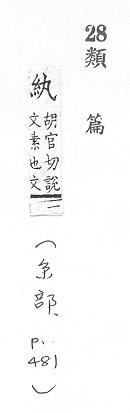 28
類篇
紈胡官切說
文素也文
一
(糸部 P.
481)